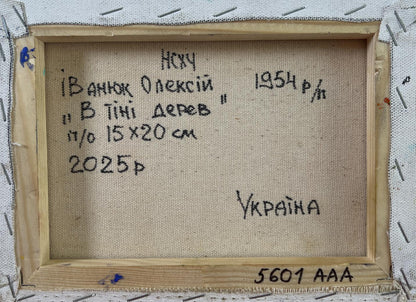 НСХУ
Іванюк Олексій 1954 р/н
„В тіні дерев"
п/о 15х20 см
2025р
Україна
5601 ААА